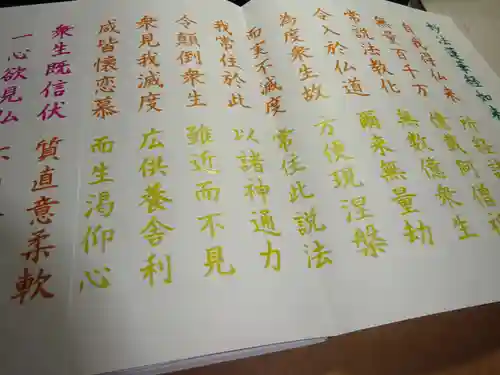 妙法蓮華経如来
自我得仏来 所経諸
無量百千万 億載阿僧祇
常説法教化 無数億衆生
令入於仏道 爾来無量劫
為度衆生故 方便現涅槃
而実不滅度 常住此説法
我常住於此 以諸神通力
令顛倒衆生 雖近而不見
衆見我滅度 広供養舎利
咸皆懐恋慕 而生渇仰心
衆生既信伏 質直意柔軟
一心欲見仏